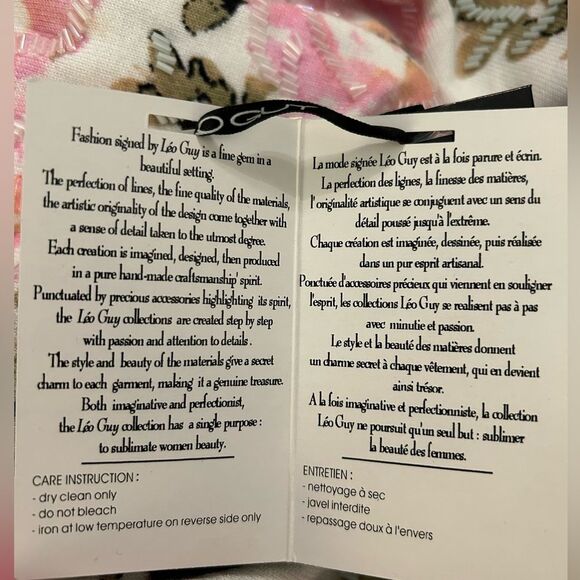 O GUY
Fashion signed by Léo Guy is a fine gem in a
beautiful setting.
The perfection of lines, the fine quality of the materials,
the artistic originality of the design come together with
a sense of detail taken to the utmost degree.
Each creation is imagined, designed, then produced
in a pure hand-made craftsmanship' spirit.
Punctuated by precious accessories highlighting its spirit,
the Léo Guy collections are created step by step
with passion and attention to details.
The style and beauty of the materials give a secret
charm to each garment, making it a genuine treasure.
Both imaginative and perfectionist,
the Léo Guy collection has a single purpose :
to sublimate women beauty.
CARE INSTRUCTION :
- dry clean only
- do not bleach
- iron at low temperature on reverse side only
La mode signée Léo Guy est à la fois parure et écrin.
La perfection des lignes, la finesse des matières,
l'originalité artistique se conjuguent avec un sens du
détail poussé jusqu'à l'extrême.
Chaque création est imaginée, dessinée, puis réalisée
dans un pur esprit artisanal.
Ponctuée d'accessoires précieux qui viennent en souligner
l'esprit, les collections Léo Guy se realisent pas à pas
avec minutie et passion.
Le style et la beauté des matières donnent
un charme secret à chaque vêtement, qui en devient
ainsi trésor.
A la fois imaginative et perfectionniste, la collection
Léo Guy ne poursuit qu'un seul but : sublimer
la beauté des femmes.
ENTRETIEN :
- nettoyage à sec
- javel interdite
- repassage doux à l'envers